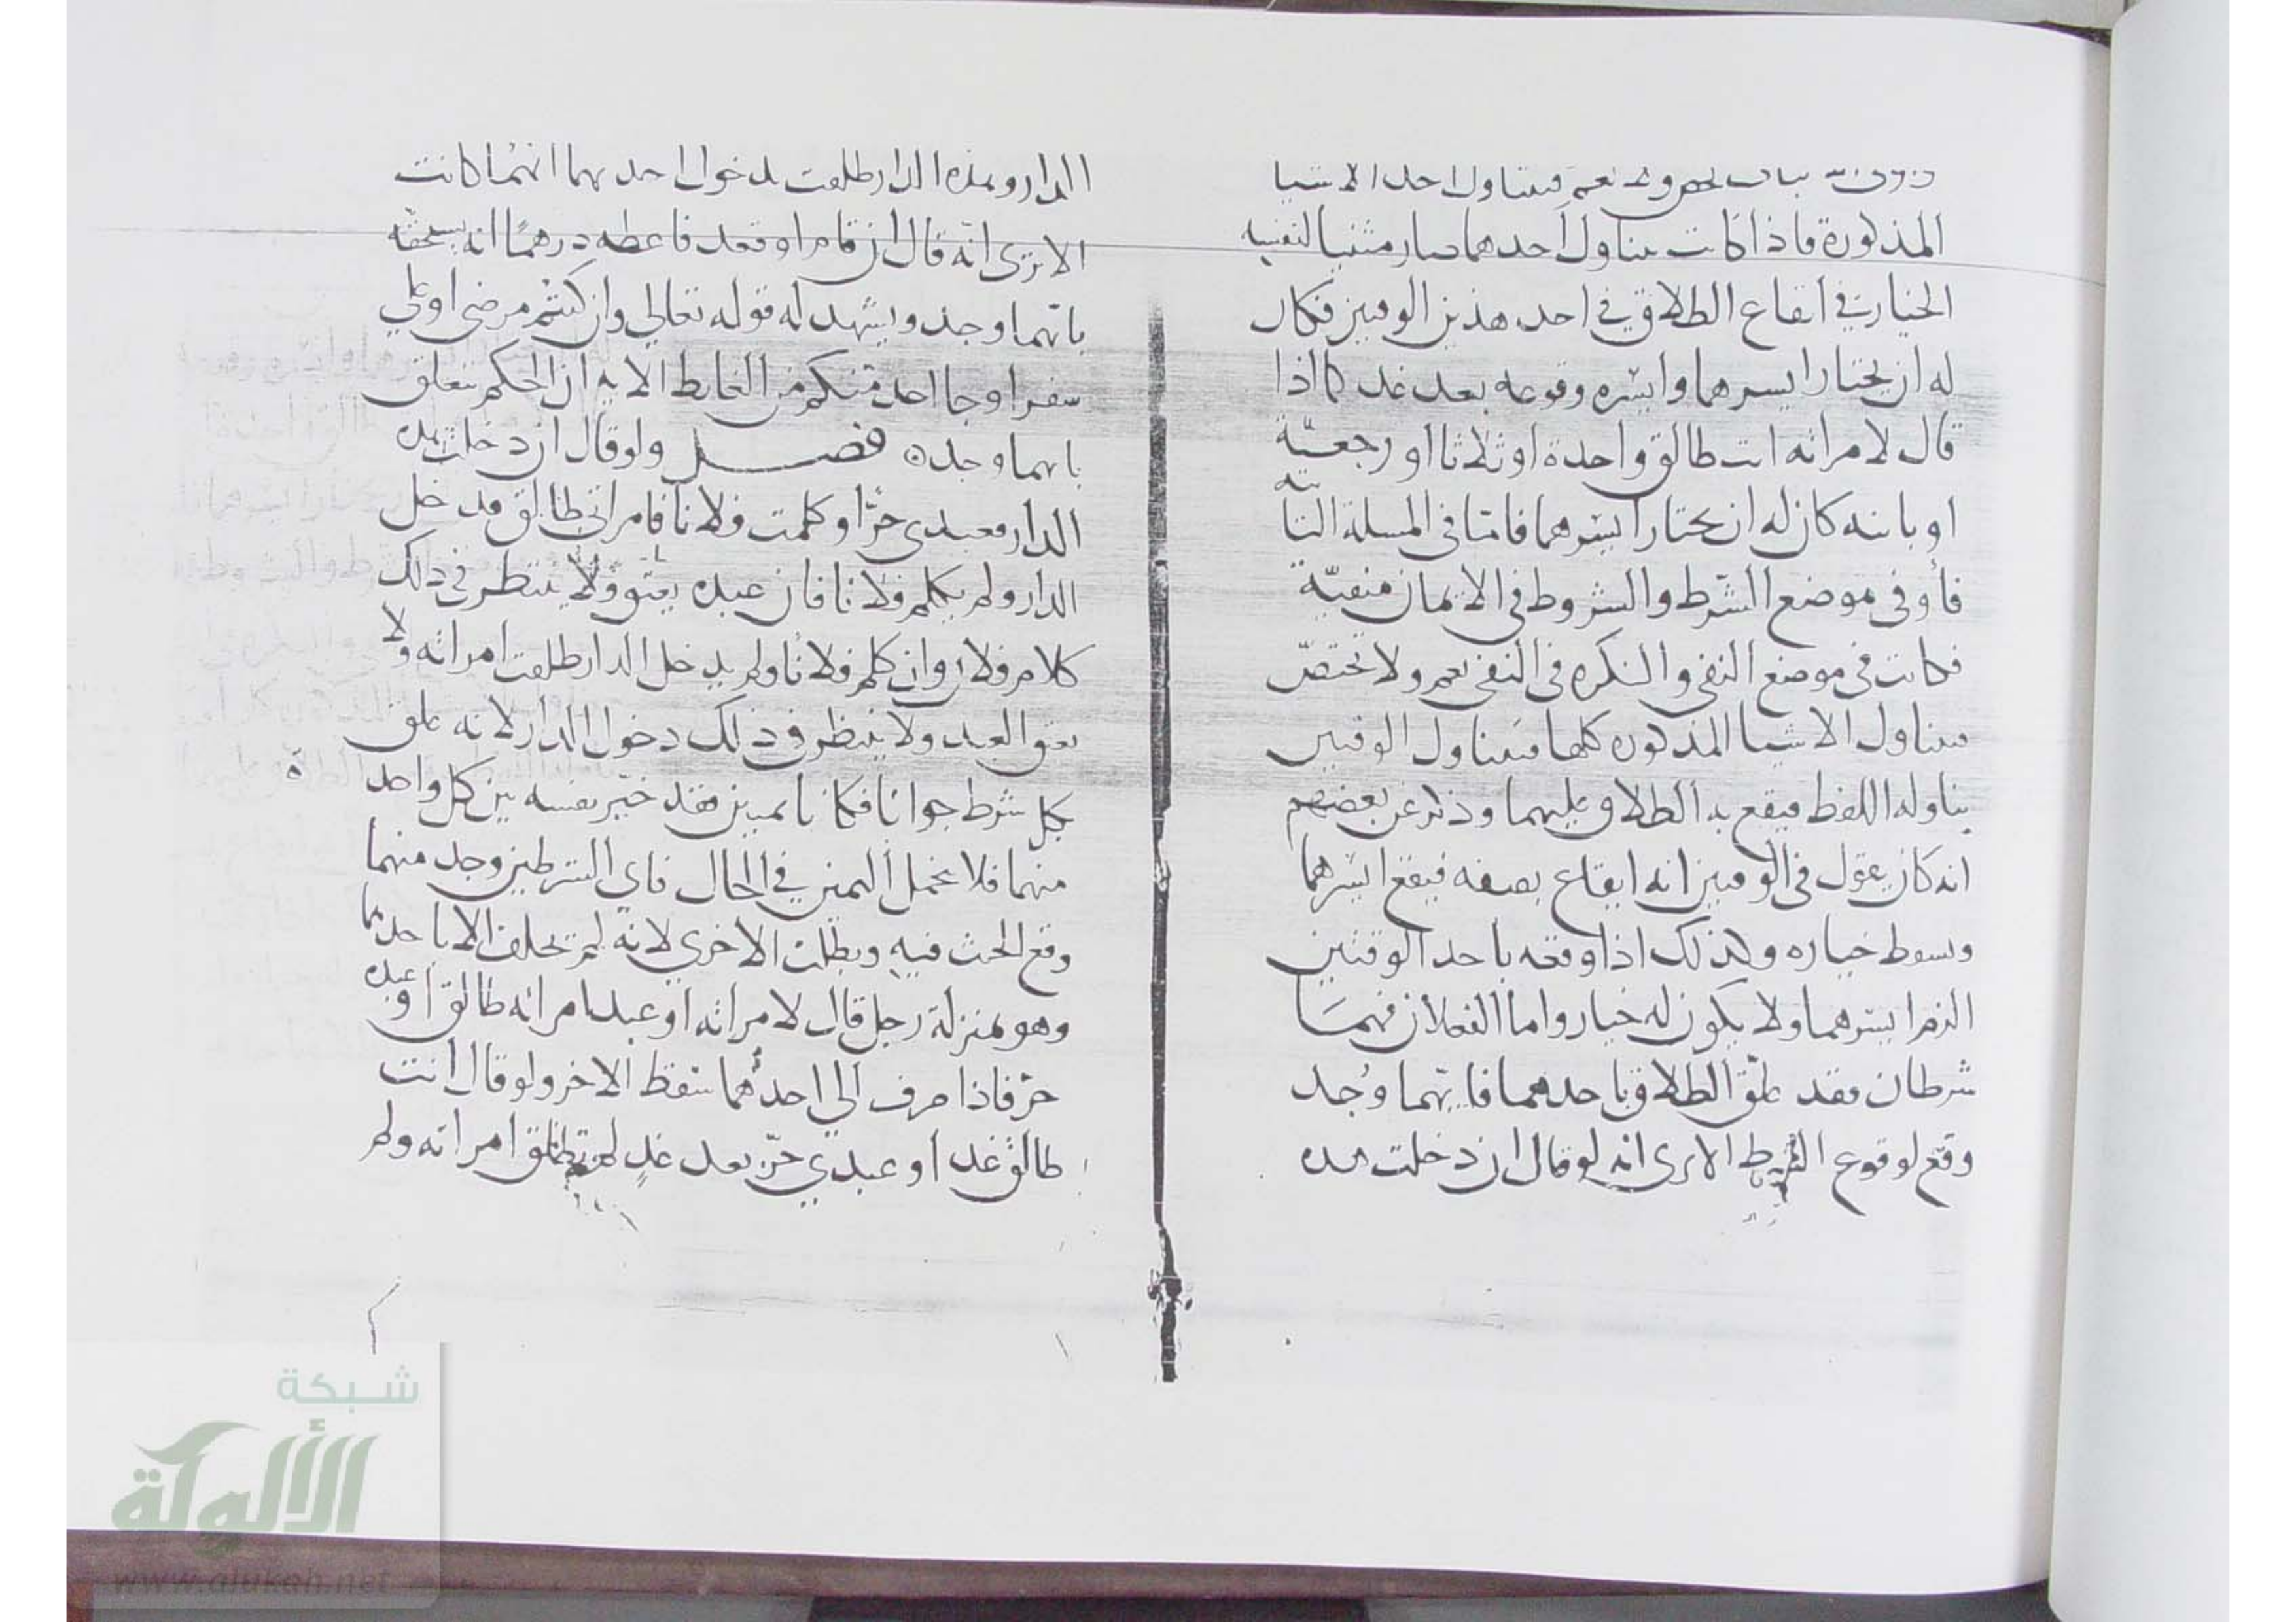 تختص ولا تعم فيتناول احد الاشيا
المذكورة فاذا كانت يتناول احدهما صار مثبتا لنفسه
الخيار في ايقاع الطلاق في احد هذين الوقتين فكان
له ان يختار ايسرهما وايسره وقوعه بعد غد كما اذا
قال لامراته انت طالق واحدة او ثلاثا او رجعية
او باينه كان له ان يختار ايسرهما فاما في المسلة الثانية
فأو في موضع الشرط والشروط في الايمان منفيّة
فكانت في موضع النفي والنكره في النفي تعم ولا تختصّ
فيتناول الاشيا المذكوره كلها فيتناول الوقتين
يتناوله اللفظ فيقع به الطلاق عليهما وذكر عن بعضهم
انه كان يقول في الوقتين انه ايقاع بصفه فيقع ايسرهما
وسقوط خياره وكذلك اذا وقته باحد الوقتين
الزم ايسرهما ولا يكون له خيار واما الفعلان فهما
شرطان فقد علّق الطلاق باحدهما فايّهما وُجد
وقع لوقوع الشرط الا ترى انه لو قال ان دخلت هذه
الدار وهذه الدار طلقت بدخول احديهما ايّهما كانت
الا ترى انّه قال ان قام او قعد فاعطه درهمًا انه يستحقّه
بايّهما وجد ويشهد له قوله تعالي وان كنتم مرضى او علي
سفر او جا احد منكم من الغايط الايه ان الحكم يتعلق
بايهما وجد ه فصل ولو قال ان دخلت هذه
الدار فعبدي حرّ او كلمت فلانا فامراتي طالق فدخل
الدار ولم يكلم فلانا فان عبده يعتق ولا ينتظر في ذلك
كلام فلان وان كلم فلانا ولم يدخل الدار طلقت امراته ولا
يعتق العبد ولا ينتظر في ذلك دخول الدار لانه علق
بكل شرط جوابا فكانا يمينين فقد خيّر نفسه بين كل واحد ه
منهما فلا يحمل اليمين في الحال فاي الشرطين وجد منهما
وقع الحنث فيه وبطلت الاخري لانه لم يحلف الا باحديهما
وهو بمنزلة رجل قال لامراته او عبده امراته طالق او عبده
حرّ فاذا صرف الي احدهما سقط الاخر ولو قال انت
طالق غد او عبدي حرّ بعد غدٍ لم تطلق امراته ولم
شبكة
الألوكة
www.alukah.net